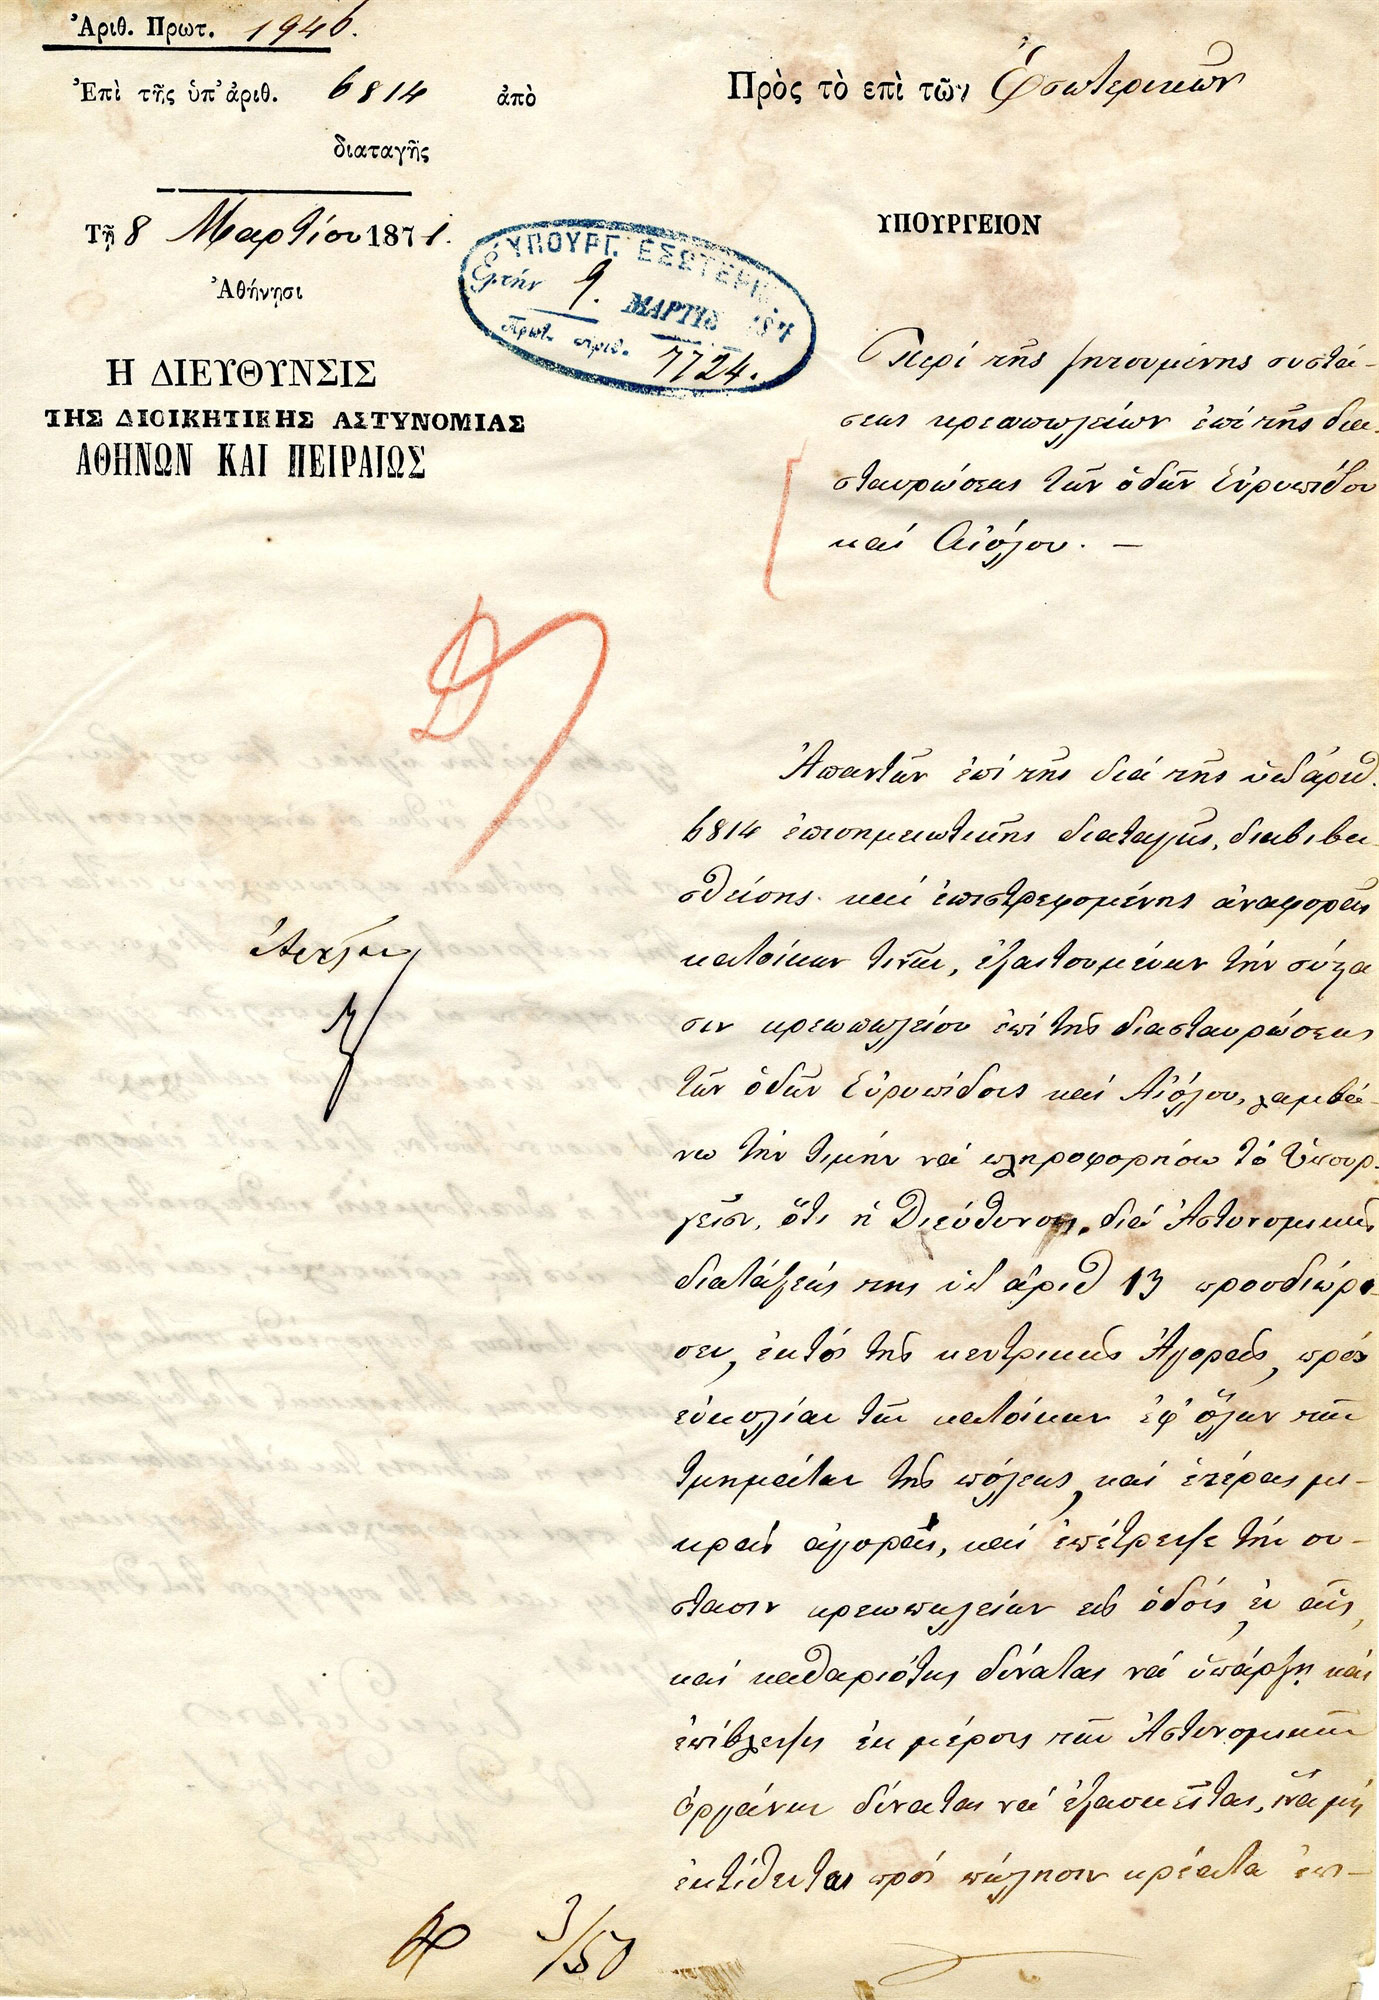 Ἀριθ. Πρωτ. 1946.
Ἐπὶ τῆς ὑπ' ἀριθ. 6814 ἀπὸ
διαταγῆς
Τῇ 8 Μαρτίου 1871.
Ἀθήνησι
Η ΔΙΕΥΘΥΝΣΙΣ
ΤΗΣ ΔΙΟΙΚΗΤΙΚΗΣ ΑΣΤΥΝΟΜΙΑΣ
ΑΘΗΝΩΝ ΚΑΙ ΠΕΙΡΑΙΩΣ
ΥΠΟΥΡΓ. ΕΣΩΤΕΡΙΚ
τὴν 9. ΜΑΡΤΙΟ 187
Πρωτ. ἀριθ. 7724.
Πρὸς τὸ ἐπὶ τῶν Ἐσωτερικῶν
ΥΠΟΥΡΓΕΙΟΝ
Περὶ τῆς ζητουμένης συστά-
σεως κρεωπωλείων ἐπὶ τῆς δια-
σταυρώσεως τῶν ὁδῶν Εὐριπίδου
καὶ Αἰόλου. —
Ἀπαντῶν ἐπὶ τῆς διὰ τῆς ὑπ' ἀριθ.
6814 ἐπισημειωτικῆς διαταγῆς, διαβιβα-
σθείσης καὶ ἐπιστρεφομένης ἀναφορᾶς
κατοίκων τινῶν, ἐξαιτουμένων τὴν σύστα
σιν κρεωπωλείου ἐπὶ τῆς διασταυρώσεως
τῶν ὁδῶν Εὐριπίδους καὶ Αἰόλου, λαμβά-
νω τὴν τιμὴν νὰ πληροφορήσω τὸ Ὑπουρ-
γεῖον, ὅτι ἡ Διεύθυνσις, διὰ Ἀστυνομικῆς
διατάξεώς της ὑπ' ἀριθ 13 προσδιώρι-
σεν, ἐκτὸς τῆς κεντρικῆς Ἀγορᾶς, πρὸς
εὐκολίαν τῶν κατοίκων ἐφ' ὅλων τῶν
τμημάτων τῆς πόλεως, καὶ ἑτέρας μι-
κρὰς ἀγορὰς, καὶ ἐπέτρεψε τὴν σύ-
στασιν κρεωπωλείων εἰς ὁδοὺς, ἐν αἷς,
καὶ καθαριότης δύναται νὰ ὑπάρξῃ καὶ
ἐπίβλεψις ἐκ μέρους τῶν Ἀστυνομικῶν
ὀργάνων δύναται νὰ ἐξασκεῖται, ἵνα μὴ
ἐκτίθενται πρὸς πώλησιν κρέατα ἐπι-
3/50